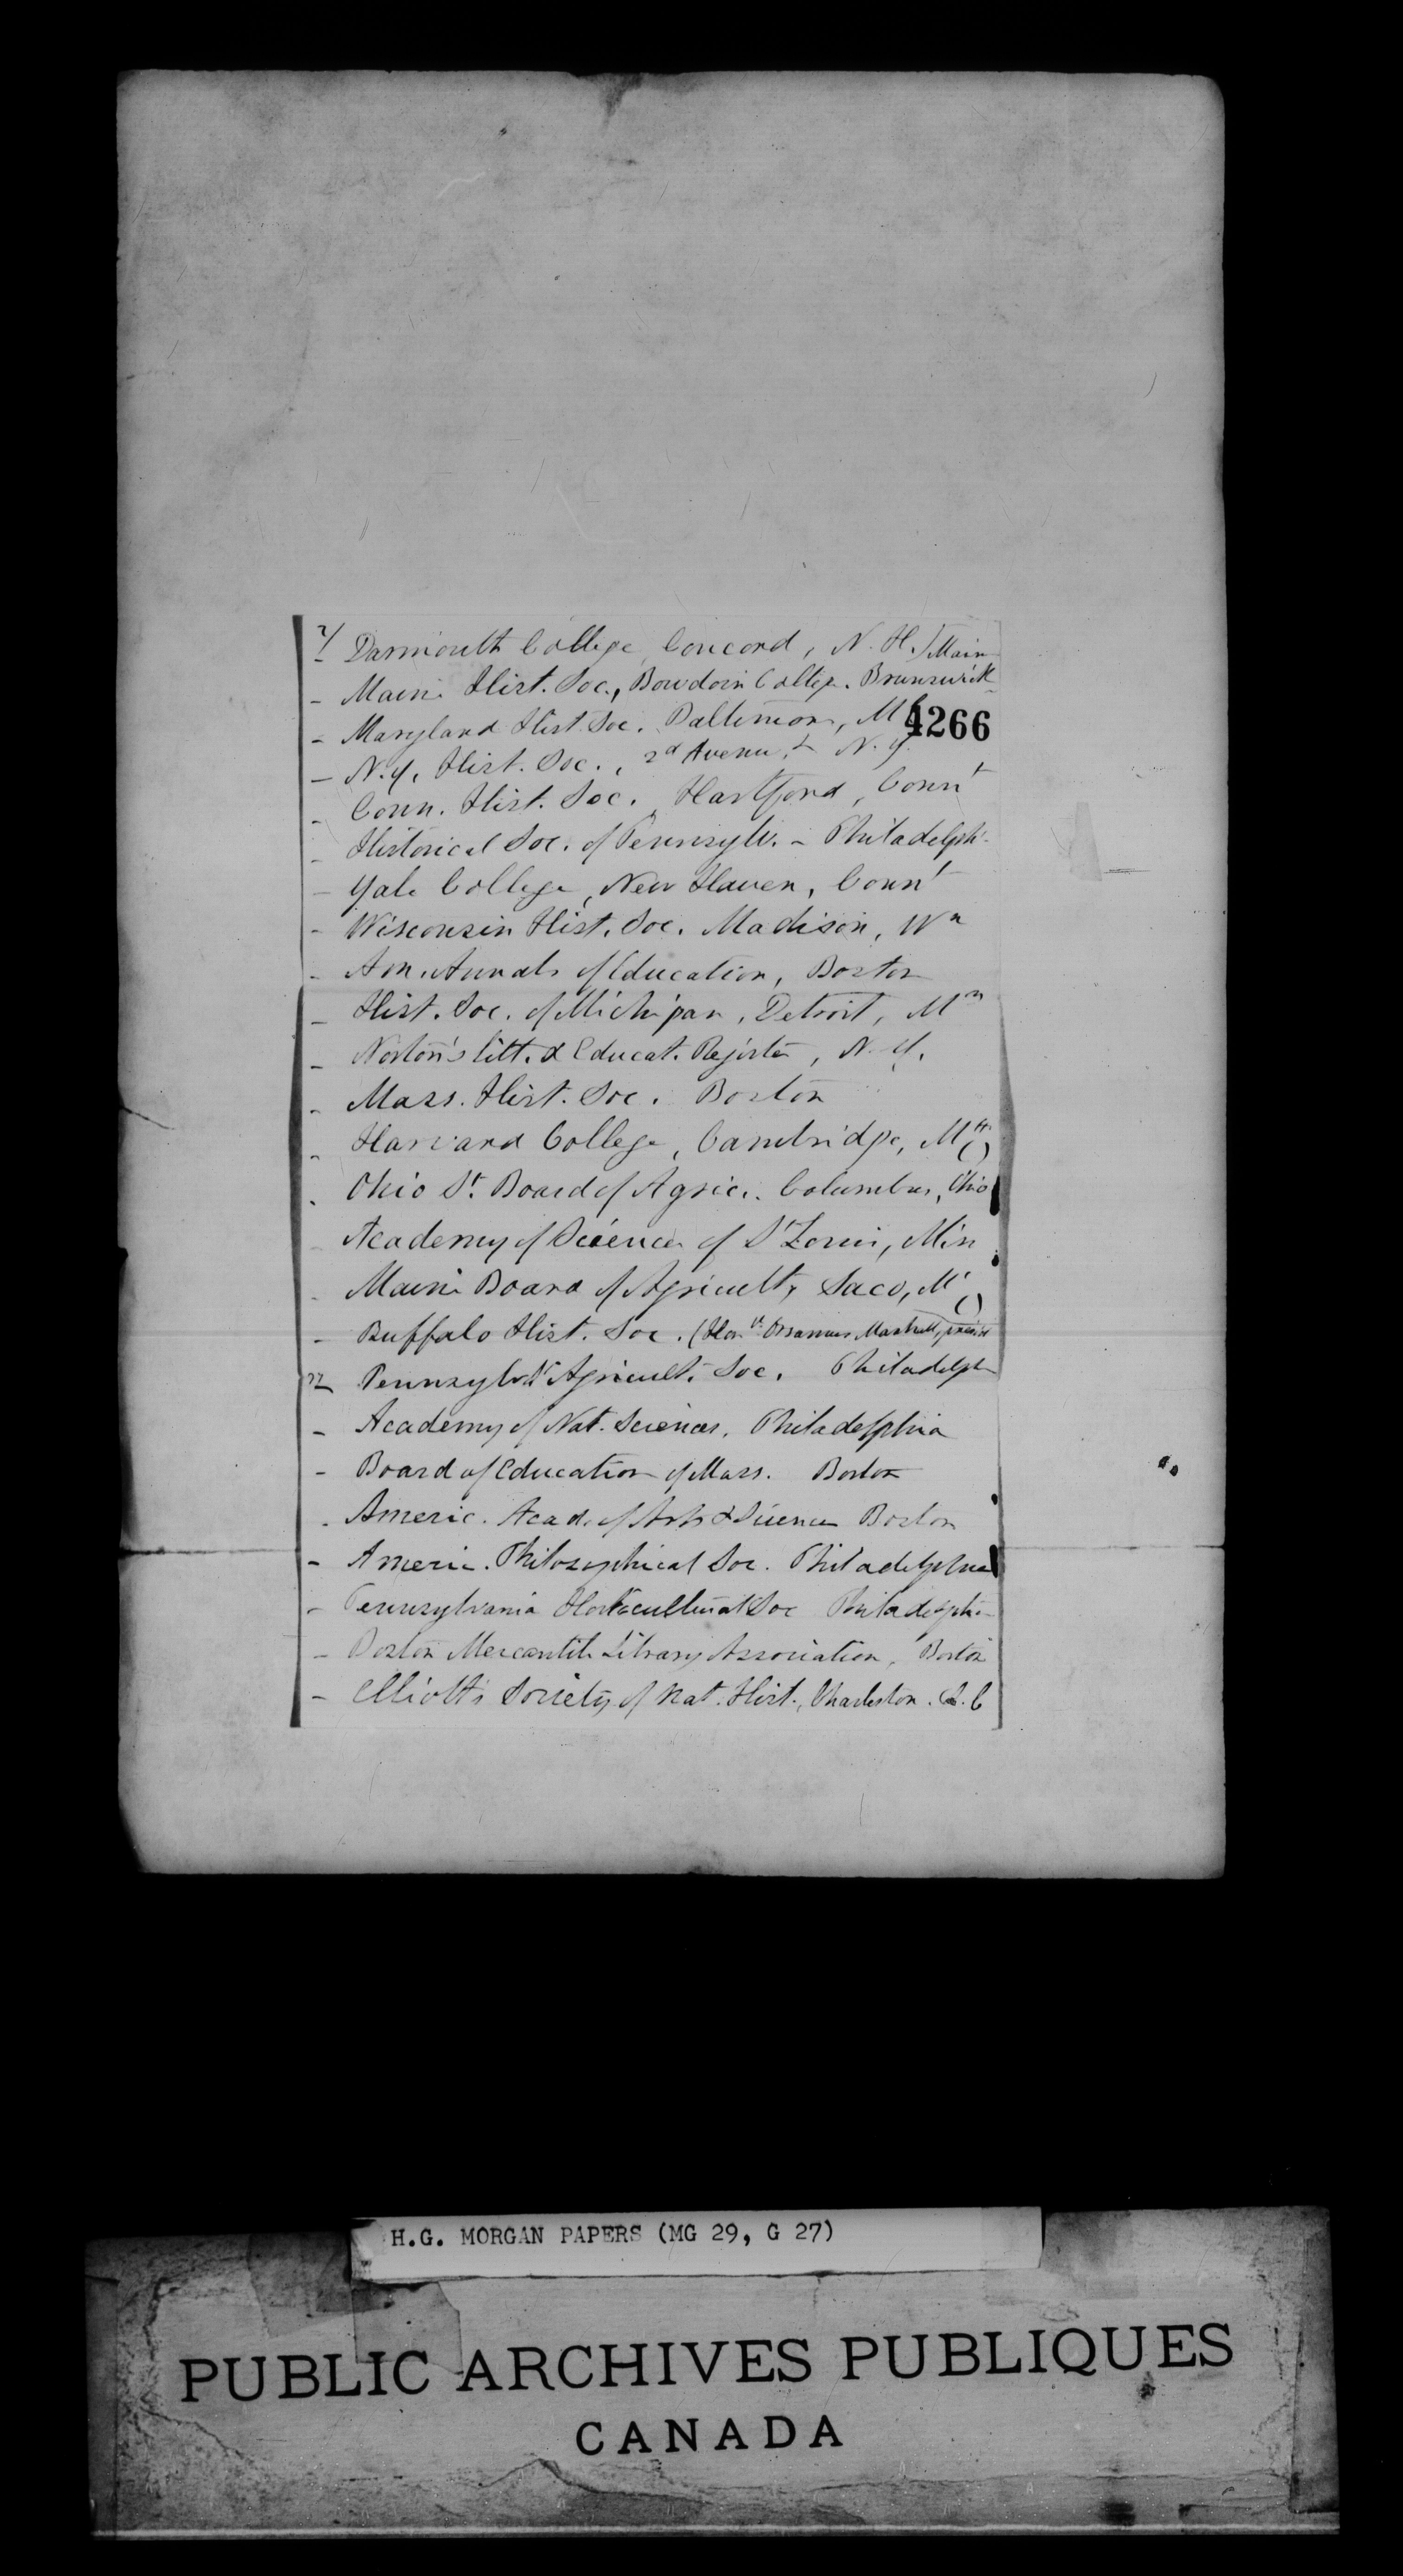 Darmouth College, Concord, N. H.
- Maine Hist. Soc., Bowdoin College. Brunswick Main
- Maryland Hist. Soc. Baltimore, Md
4266
- N.Y. Hist. Soc., 2d Avenue, N.Y.
- Conn. Hist. Soc., Hartford, Connt
- Historical Soc. of Pennsylv. - Philadelph.
- Yale College, New Haven, Connt
- Wisconsin Hist. Soc. Madison, Wn
- Am. Annals of Education, Boston
- Hist. Soc. of Michigan, Detroit, Mn
- Norton's litt. & Educat. Register, N. Y.
- Mass. Hist. Soc. Boston
- Harvard College, Cambridge, Mtts
- Ohio St. Board of Agric. Columbus, Ohio
- Academy of Science of St Louis, Miss
- Maine Board of Agricult, Saco, Me
- Buffalo Hist. Soc. (Honble Orsamus Marshall, presidt
- Pennsylv. Agricult. Soc. Philadelph
- Academy of Nat. Sciences, Philadelphia
- Board of Education of Mass. Boston
- Americ. Acad. of Arts & Science Boston
- Americ. Philosophical Soc. Philadelphia
- Pennsylvania Horticultural Soc Philadelphi
- Boston Mercantile Library Association, Boston
- Elliott's Society of Nat. Hist., Charleston. S.C
H.G. MORGAN PAPERS (MG 29, G 27)
PUBLIC ARCHIVES PUBLIQUES
CANADA